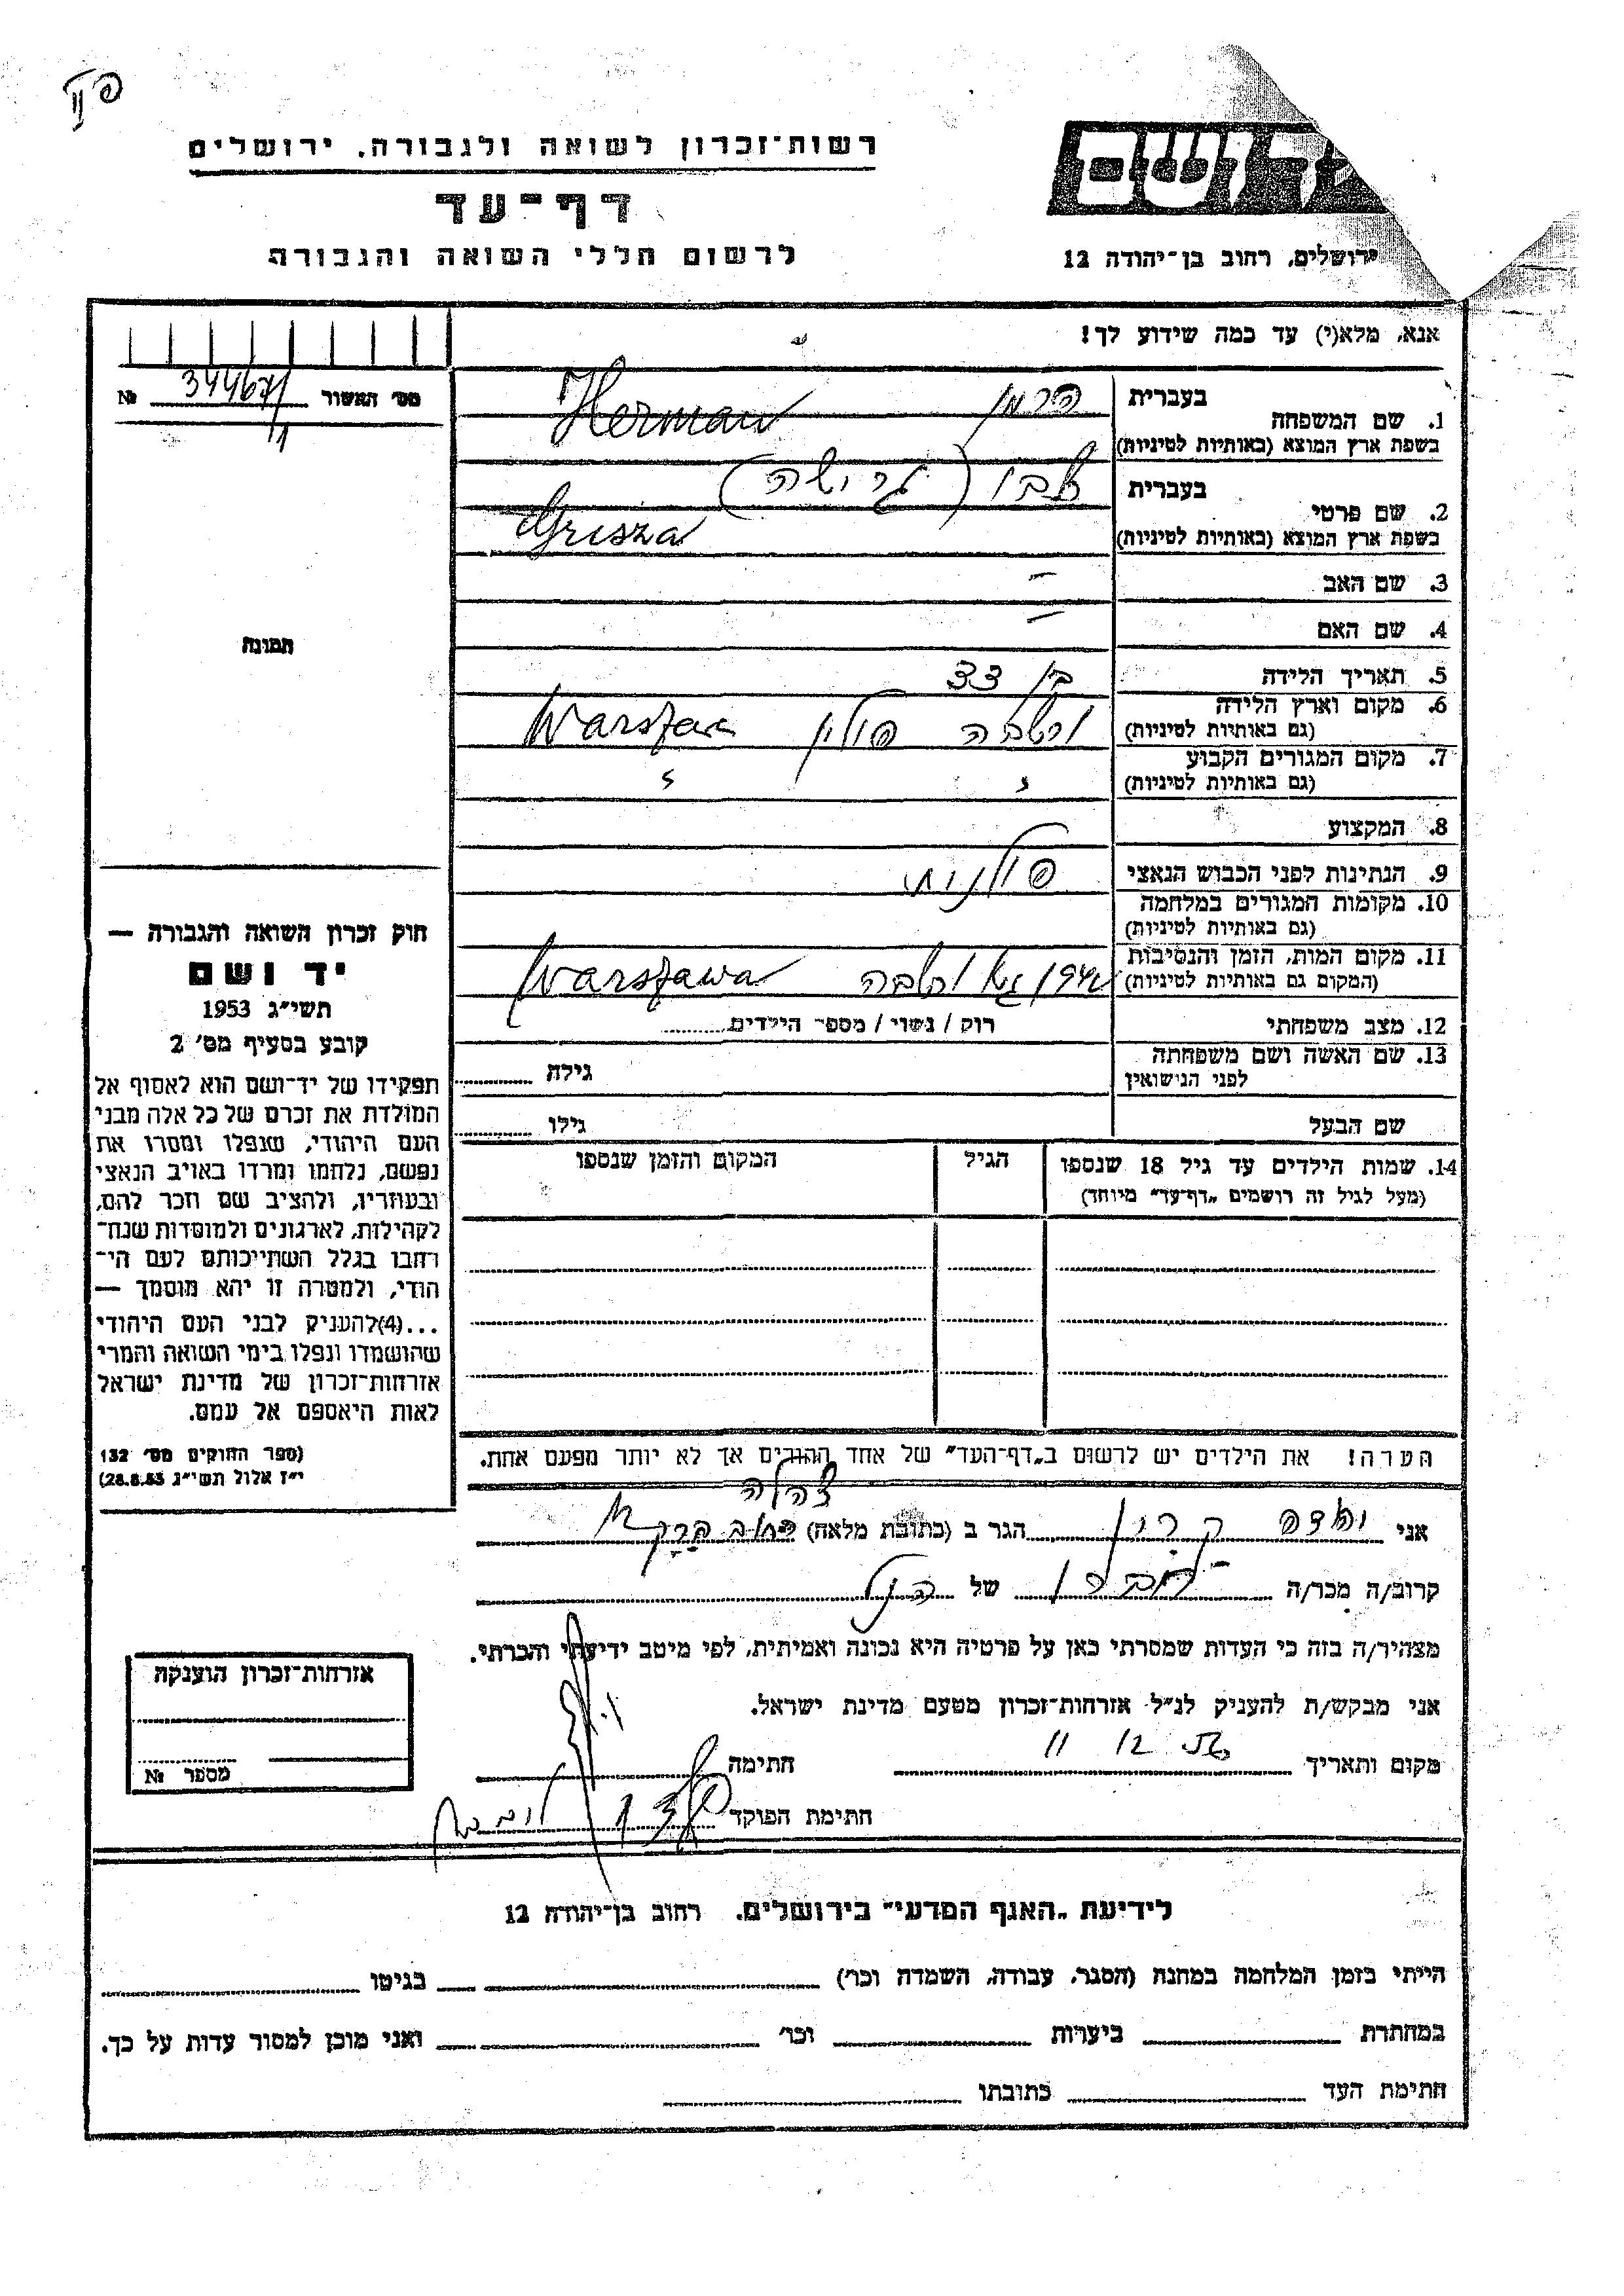 רשות־זכרון לשואה ולגבורה. ירושלים
דף־עד
לרשום חללי השואה והגבורה
ושם
ירושלים, רחוב בן־יהודה 12
אנא, מלא(י) עד כמה שידוע לך!
מס׳ האשור 344671 №
1
1. שם המשפחה בעברית הרמן
בשפת ארץ המוצא (באותיות לטיניות) Herman
2. שם פרטי בעברית (גרישה)
בשפת ארץ המוצא (באותיות לטיניות) Grisza
3. שם האב –
4. שם האם –
5. תאריך הלידה בן 33
6. מקום וארץ הלידה ורשבה פולין Warszawa
(גם באותיות לטיניות)
7. מקום המגורים הקבוע " "
(גם באותיות לטיניות)
8. המקצוע
9. הנתינות לפני הכבוש הנאצי פולנית
10. מקומות המגורים במלחמה
(גם באותיות לטיניות)
11. מקום המות, הזמן והנסיבות ורשבה Warszawa
(המקום גם באותיות לטיניות)
12. מצב משפחתי רוק / נשוי / מספר הילדים
13. שם האשה ושם משפחתה גילה
לפני הנישואין
שם הבעל גילו
14. שמות הילדים עד גיל 18 שנספו הגיל המקום והזמן שנספו
(מעל לגיל זה רושמים „דף־עד״ מיוחד)
הערה! את הילדים יש לרשום ב„דף־העד״ של אחד ההורים אך לא יותר מפעם אחת.
תמונה
חוק זכרון השואה והגבורה —
יד ושם
תשי״ג 1953
קובע בסעיף מס׳ 2
תפקידו של יד־ושם הוא לאסוף אל
המולדת את זכרם של כל אלה מבני
העם היהודי, שנפלו ומסרו את
נפשם, נלחמו ומרדו באויב הנאצי
ובעוזריו, ולהציב שם וזכר להם,
לקהילות, לארגונים ולמוסדות שנח־
רבו בגלל השתייכותם לעם הי־
הודי, ולמטרה זו יהא מוסמך —
...(4)להעניק לבני העם היהודי
שהושמדו ונפלו בימי השואה והמרי
אזרחות־זכרון של מדינת ישראל
לאות היאספם אל עמם.
(ספר החוקים מס׳ 132
י״ז אלול תשי״ג 28.8.53)
צהלה
אני קרין הגר ב (כתובת מלאה) רחוב ברק
קרוב/ה מכר/ה חברו של הנ״ל
מצהיר/ה בזה כי העדות שמסרתי כאן על פרטיה היא נכונה ואמיתית, לפי מיטב ידיעתי והכרתי.
אני מבקש/ת להעניק לנ״ל אזרחות־זכרון מטעם מדינת ישראל.
מקום ותאריך 11 12 חתימה
חתימת הפוקד
אזרחות־זכרון הוענקה
מספר №
לידיעת „האגף המדעי״ בירושלים. רחוב בן־יהודה 12
הייתי בזמן המלחמה במחנה (הסגר, עבודה, השמדה וכו׳) בגיטו
במחתרת ביערות וכו׳ ואני מוכן למסור עדות על כך.
חתימת העד כתובתו